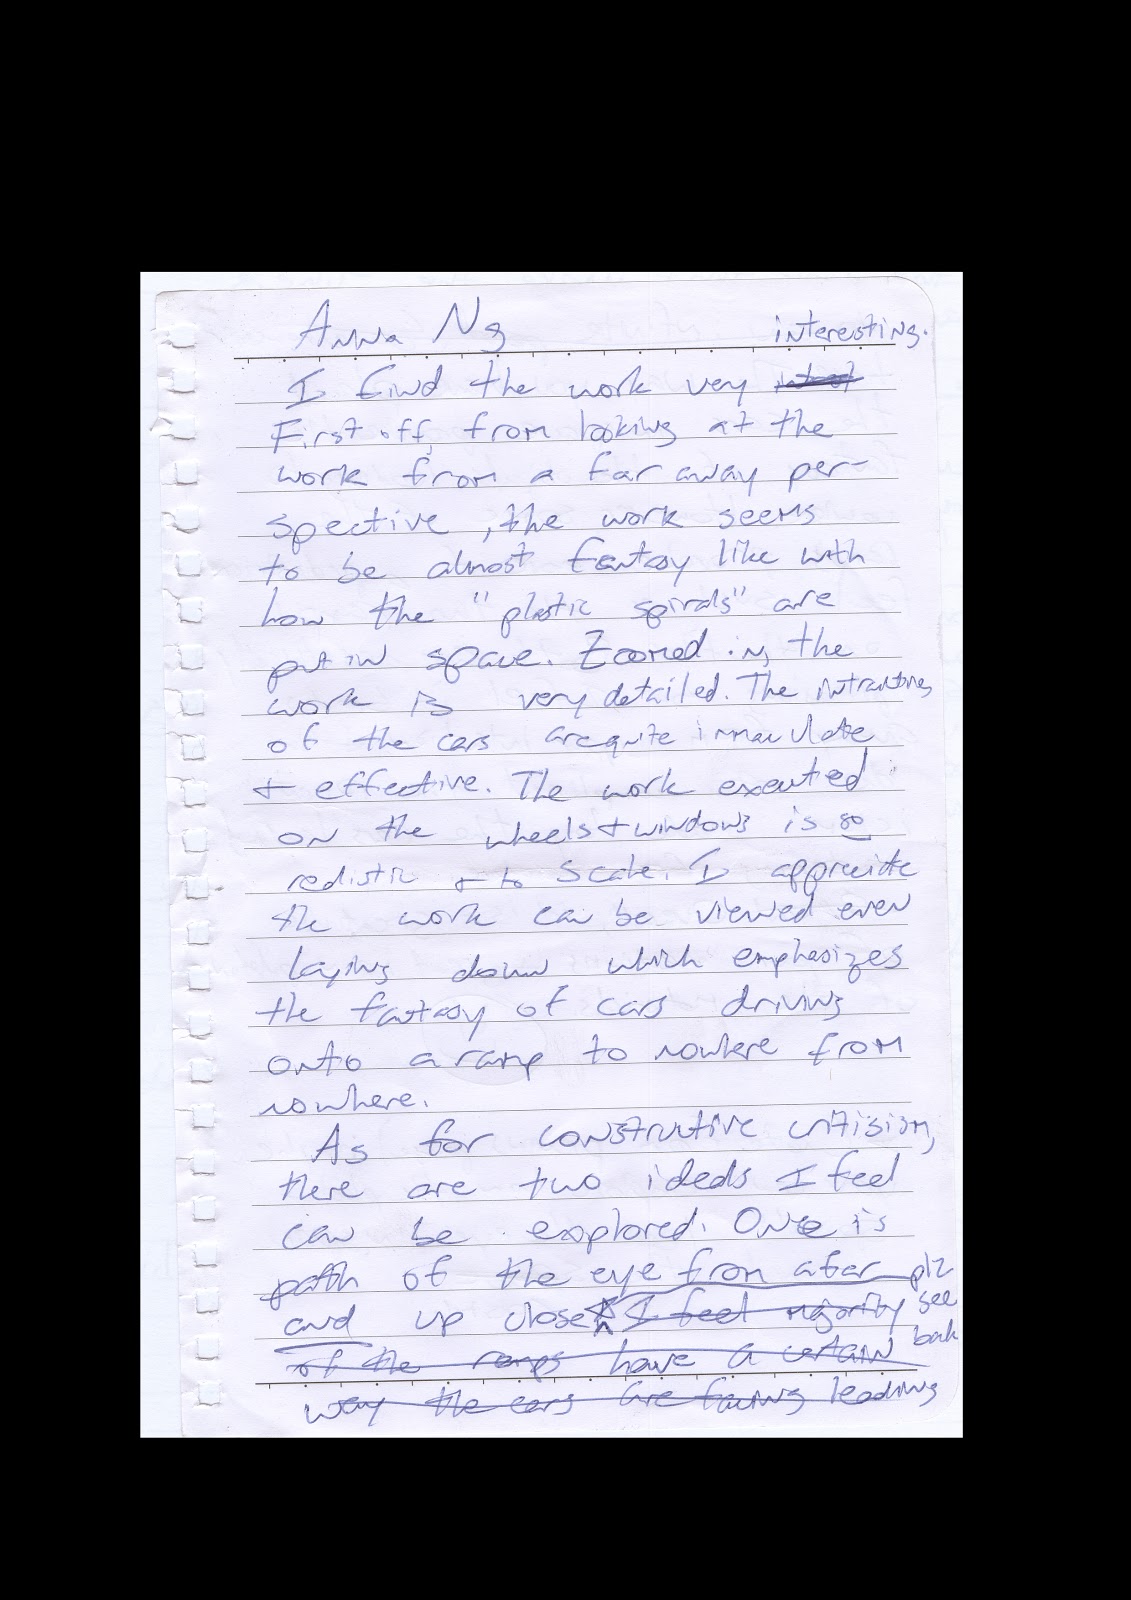 Anna Ng
interesting.
I find the work very
First off, from looking at the
work from a far away per-
spective, the work seems
to be almost fantasy like with
how the "plastic spirals" are
put in space. Zoomed in, the
work is very detailed. The
of the cars are quite immaculate
+ effective. The work executed
on the wheels + windows is so
realistic + to scale. I appreciate
the work can be viewed even
laying down which emphasizes
the fantasy of cars driving
onto a ramp to nowhere from
nowhere.
As for constructive critisism,
there are two ideas I feel
can be explored. One is
path of the eye from afar plz
and up close I feel majority see
of the ramps have a certain back
way the cars are facing leading